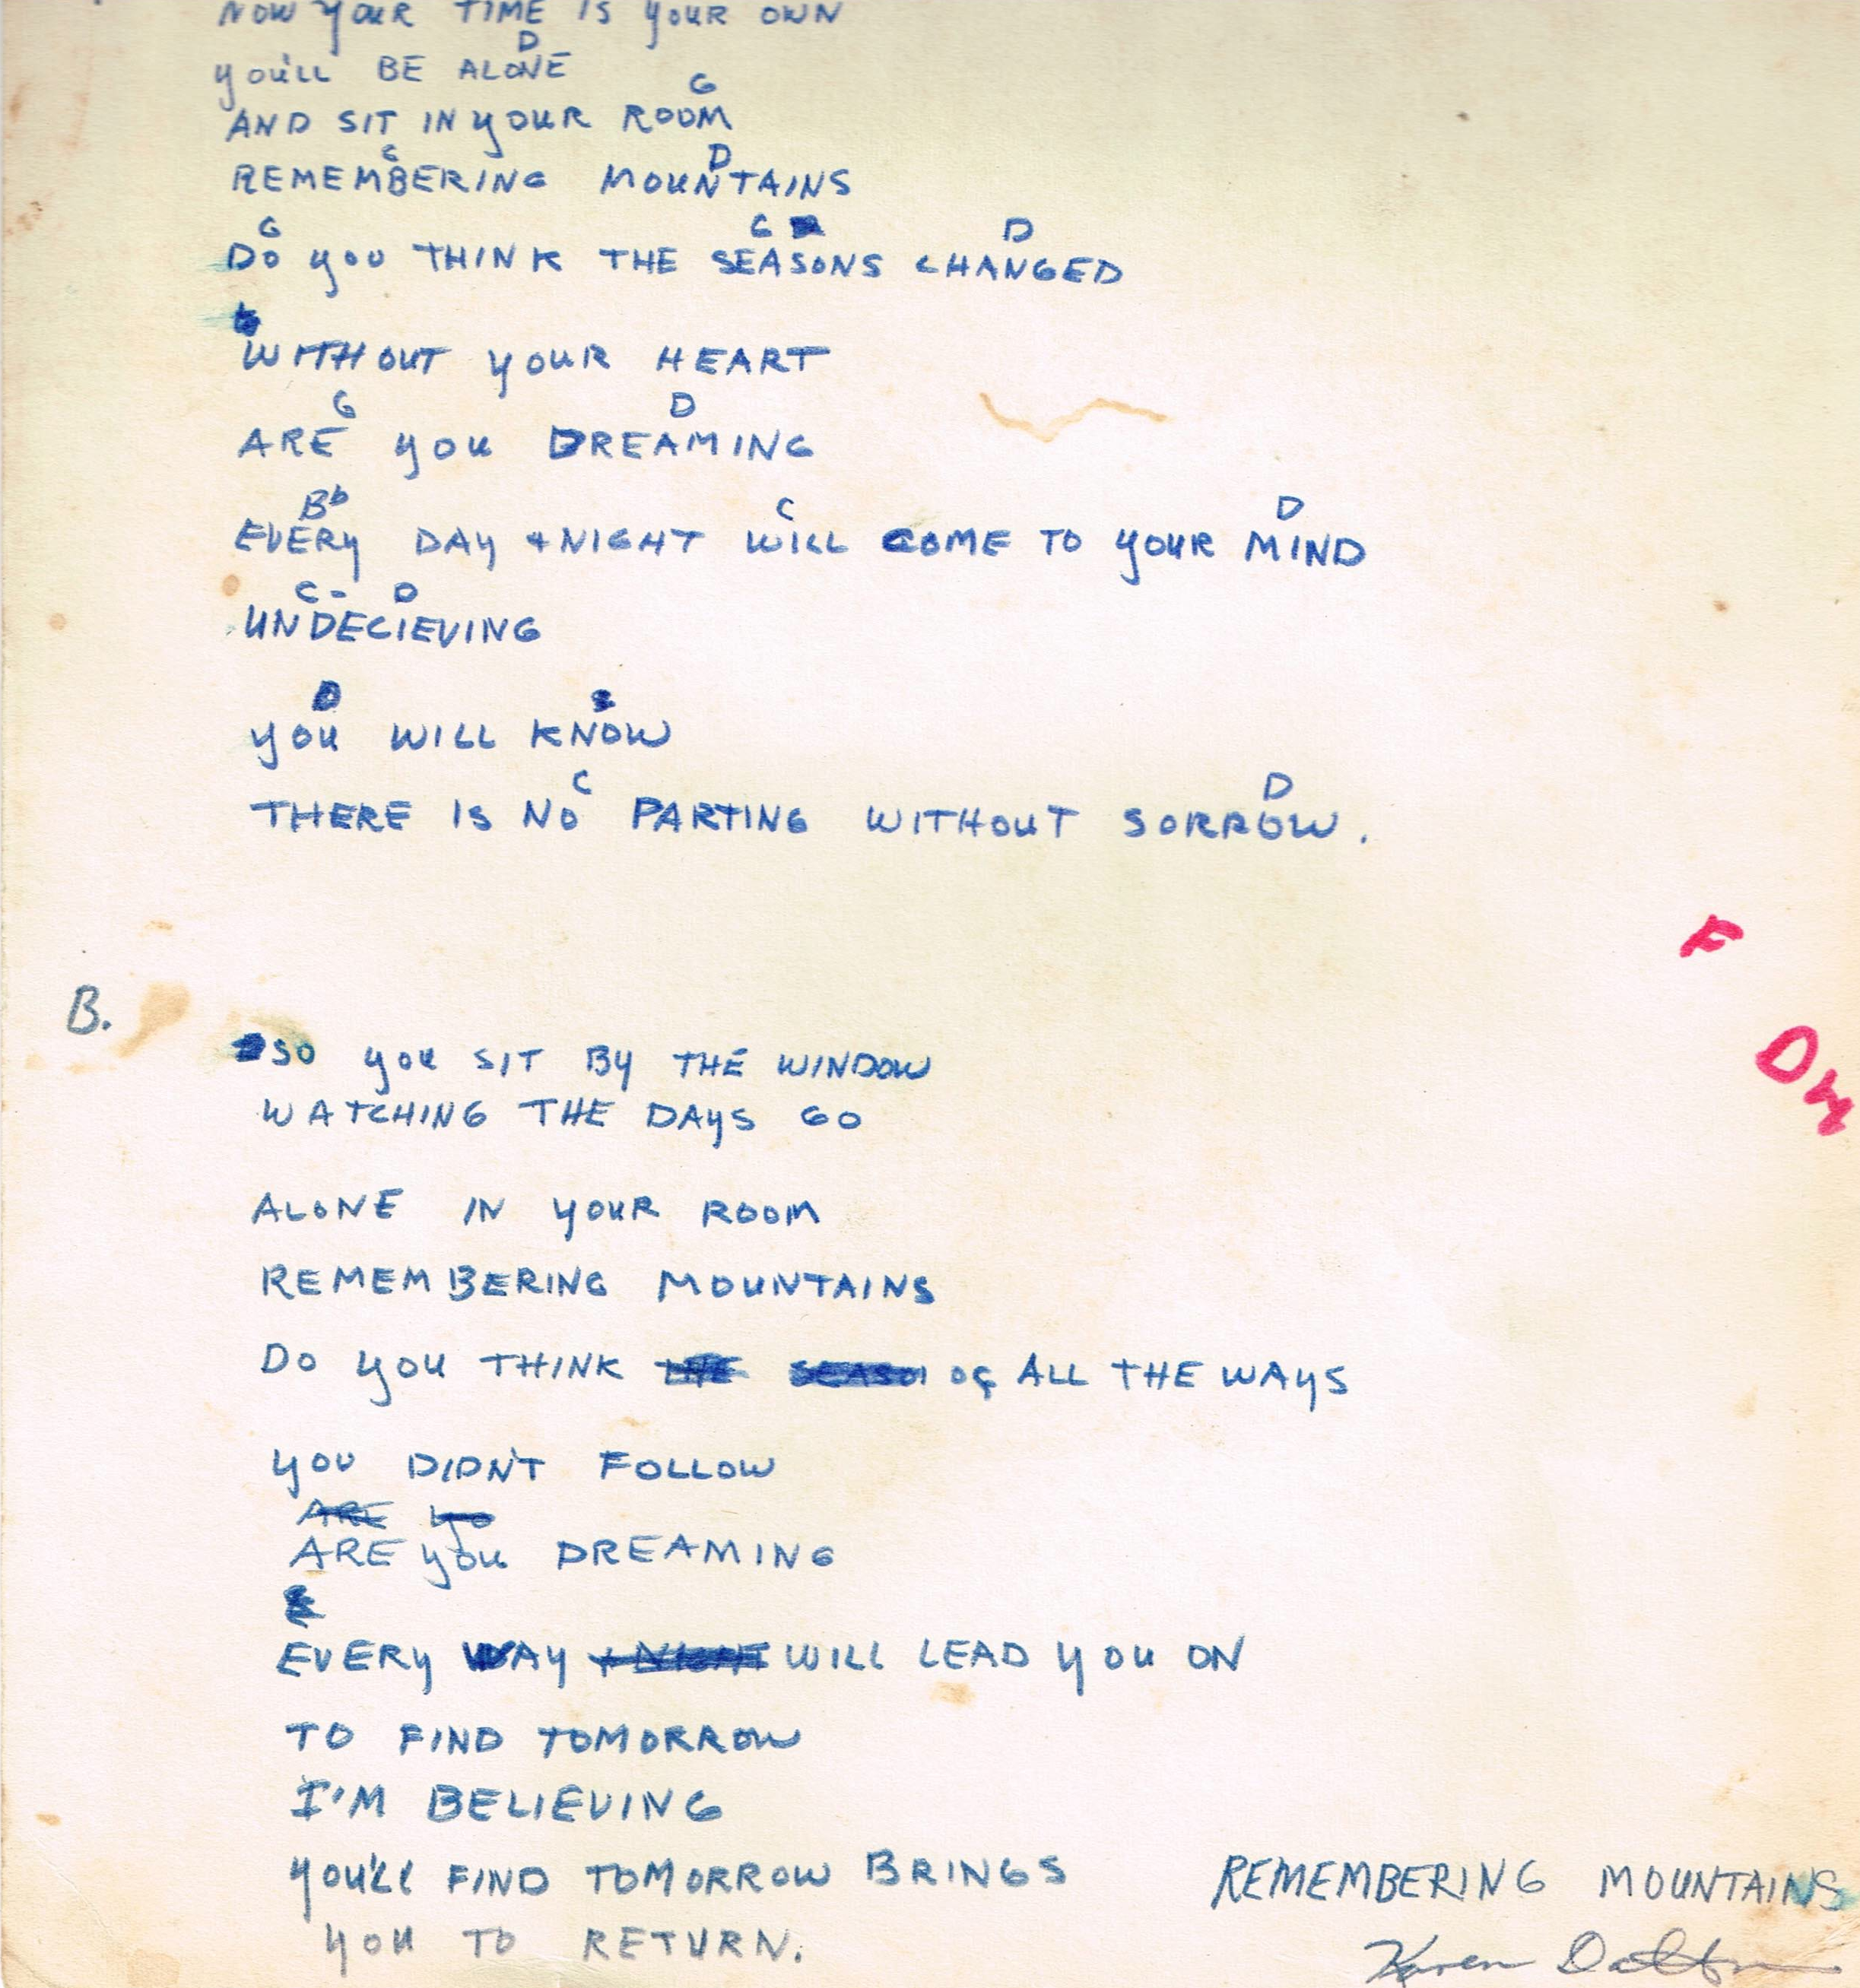 NOW YOUR TIME IS YOUR OWN
D
YOU'LL BE ALONE
G
AND SIT IN YOUR ROOM
C D
REMEMBERING MOUNTAINS
G C D
DO YOU THINK THE SEASONS CHANGED
WITHOUT YOUR HEART
G D
ARE YOU DREAMING
Bb C D
EVERY DAY + NIGHT WILL COME TO YOUR MIND
C - D
UNDECIEVING
D
YOU WILL KNOW
C D
THERE IS NO PARTING WITHOUT SORROW.
F
B.
DM
SO YOU SIT BY THE WINDOW
WATCHING THE DAYS GO
ALONE IN YOUR ROOM
REMEMBERING MOUNTAINS
DO YOU THINK THE SEASON OF ALL THE WAYS
YOU DIDN'T FOLLOW
ARE YO
ARE YOU DREAMING
EVERY WAY + NIGHT WILL LEAD YOU ON
TO FIND TOMORROW
I'M BELIEVING
YOU'LL FIND TOMORROW BRINGS
YOU TO RETURN.
REMEMBERING MOUNTAINS
Karen Dalton